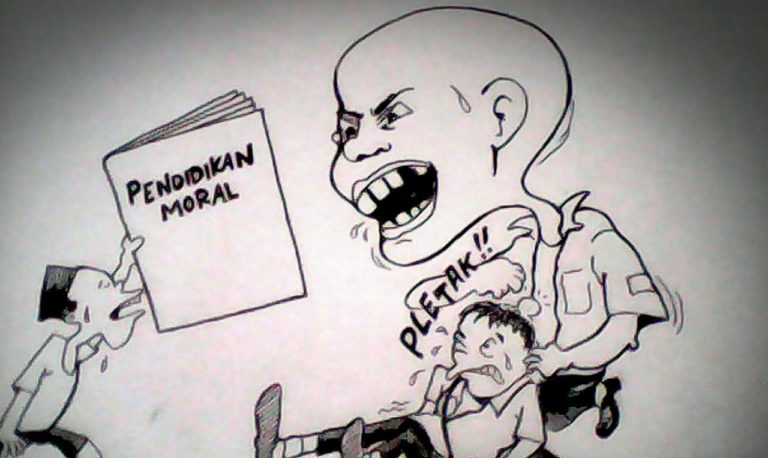 PENDIDIKAN
MORAL
PLETAK!!